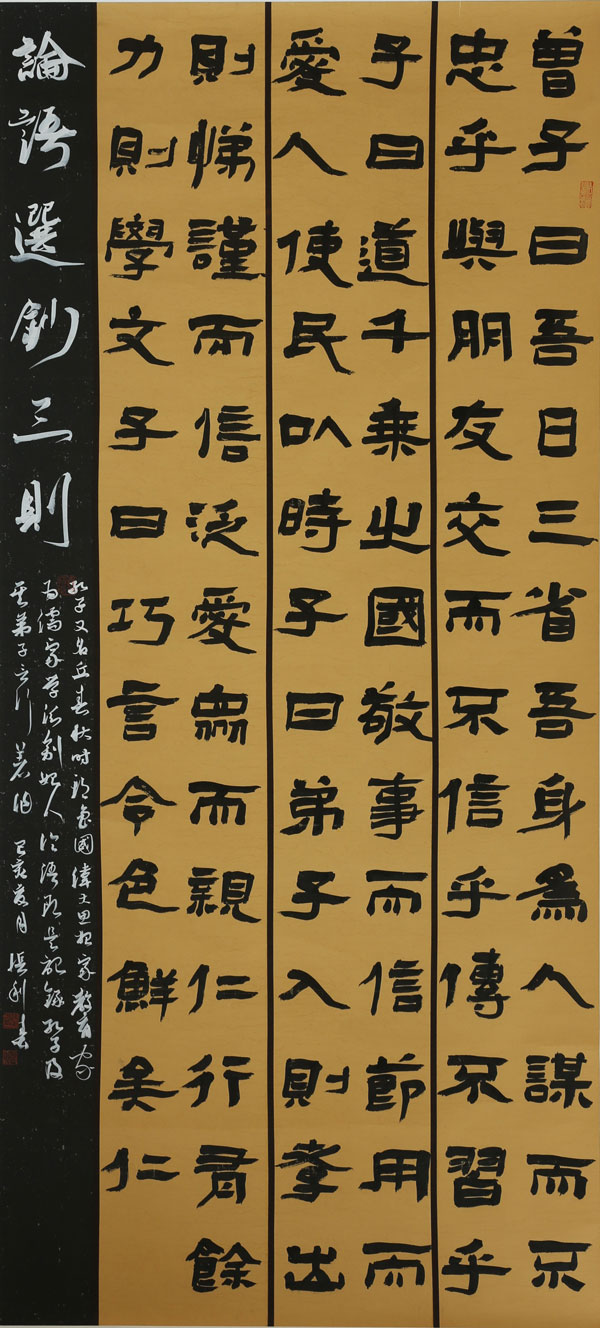 曾子曰吾日三省吾身為人謀而不
忠乎與朋友交而不信乎傳不習乎
子曰道千乘之國敬事而信節用而
愛人使民以時子曰弟子入則孝出
則悌謹而信泛愛眾而親仁行有餘
力則學文子曰巧言令色鮮矣仁
論語選鈔三則
孔子又名丘春秋时期魯國偉大思想家教育家
为儒家学派創始人论語即是記錄孔子及
其弟子言行著作 己亥夏月 書